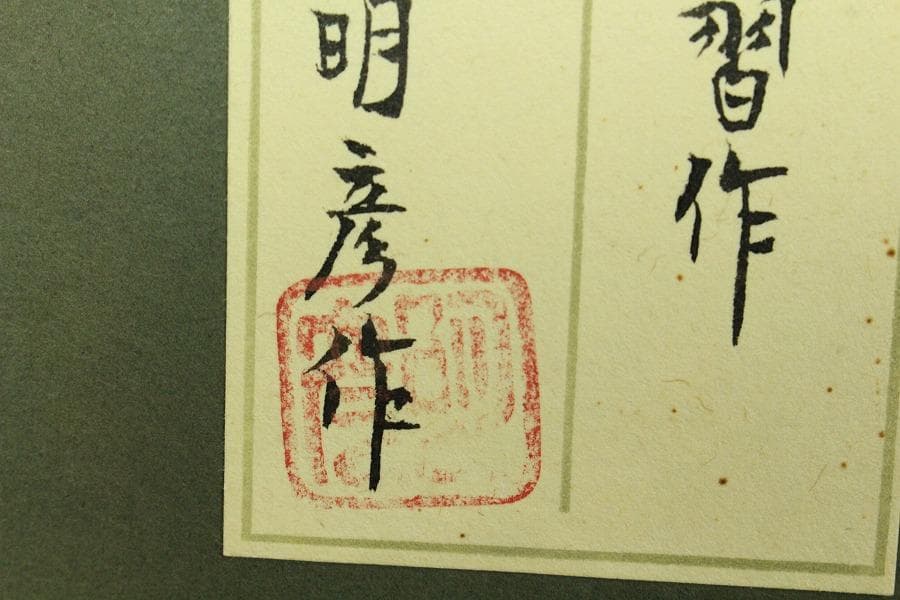 習作
明彦作